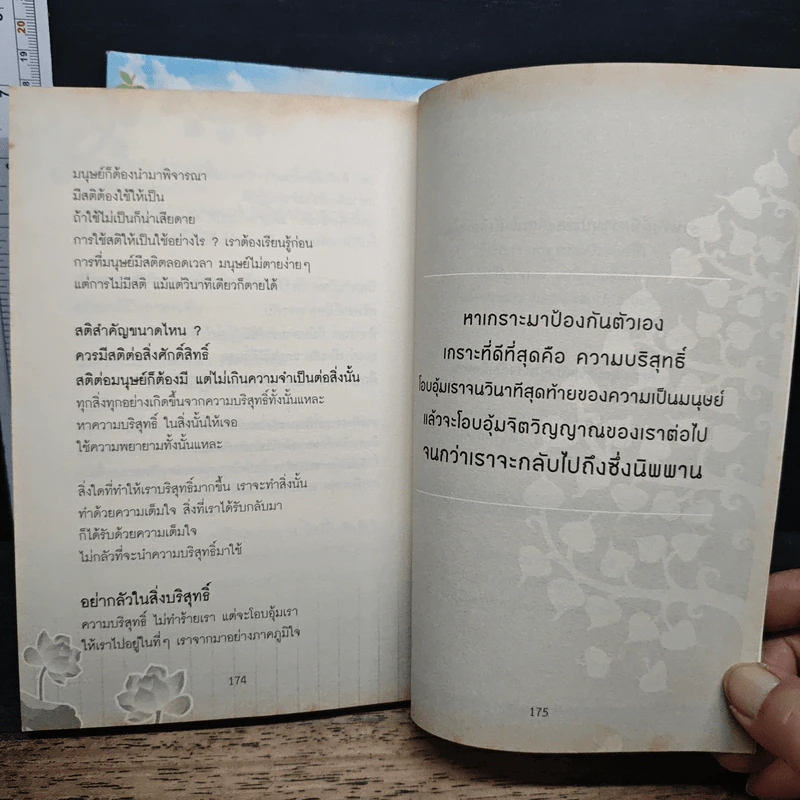 มนุษย์ก็ต้องนำมาพิจารณา
มีสติต้องใช้ให้เป็น
ถ้าใช้ไม่เป็นก็น่าเสียดาย
การใช้สติให้เป็นใช้อย่างไร ? เราต้องเรียนรู้ก่อน
การที่มนุษย์มีสติตลอดเวลา มนุษย์ไม่ตายง่ายๆ
แต่การไม่มีสติ แม้แต่วินาทีเดียวก็ตายได้
สติสำคัญขนาดไหน ?
ควรมีสติต่อสิ่งศักดิ์สิทธิ์
สติต่อมนุษย์ก็ต้องมี แต่ไม่เกินความจำเป็นต่อสิ่งนั้น
ทุกสิ่งทุกอย่างเกิดขึ้นจากความบริสุทธิ์ทั้งนั้นแหละ
หาความบริสุทธิ์ ในสิ่งนั้นให้เจอ
ใช้ความพยายามทั้งนั้นแหละ
สิ่งใดที่ทำให้เราบริสุทธิ์มากขึ้น เราจะทำสิ่งนั้น
ทำด้วยความเต็มใจ สิ่งที่เราได้รับกลับมา
ก็ได้รับด้วยความเต็มใจ
ไม่กลัวที่จะนำความบริสุทธิ์มาใช้
อย่ากลัวในสิ่งบริสุทธิ์
ความบริสุทธิ์ ไม่ทำร้ายเรา แต่จะโอบอุ้มเรา
ให้เราไปอยู่ในที่ๆ เราจากมาอย่างภาคภูมิใจ
174
หาเกราะมาป้องกันตัวเอง
เกราะที่ดีที่สุดคือ ความบริสุทธิ์
โอบอุ้มเราจนวินาทีสุดท้ายของความเป็นมนุษย์
แล้วจะโอบอุ้มจิตวิญญาณของเราต่อไป
จนกว่าเราจะกลับไปถึงซึ่งนิพพาน
175